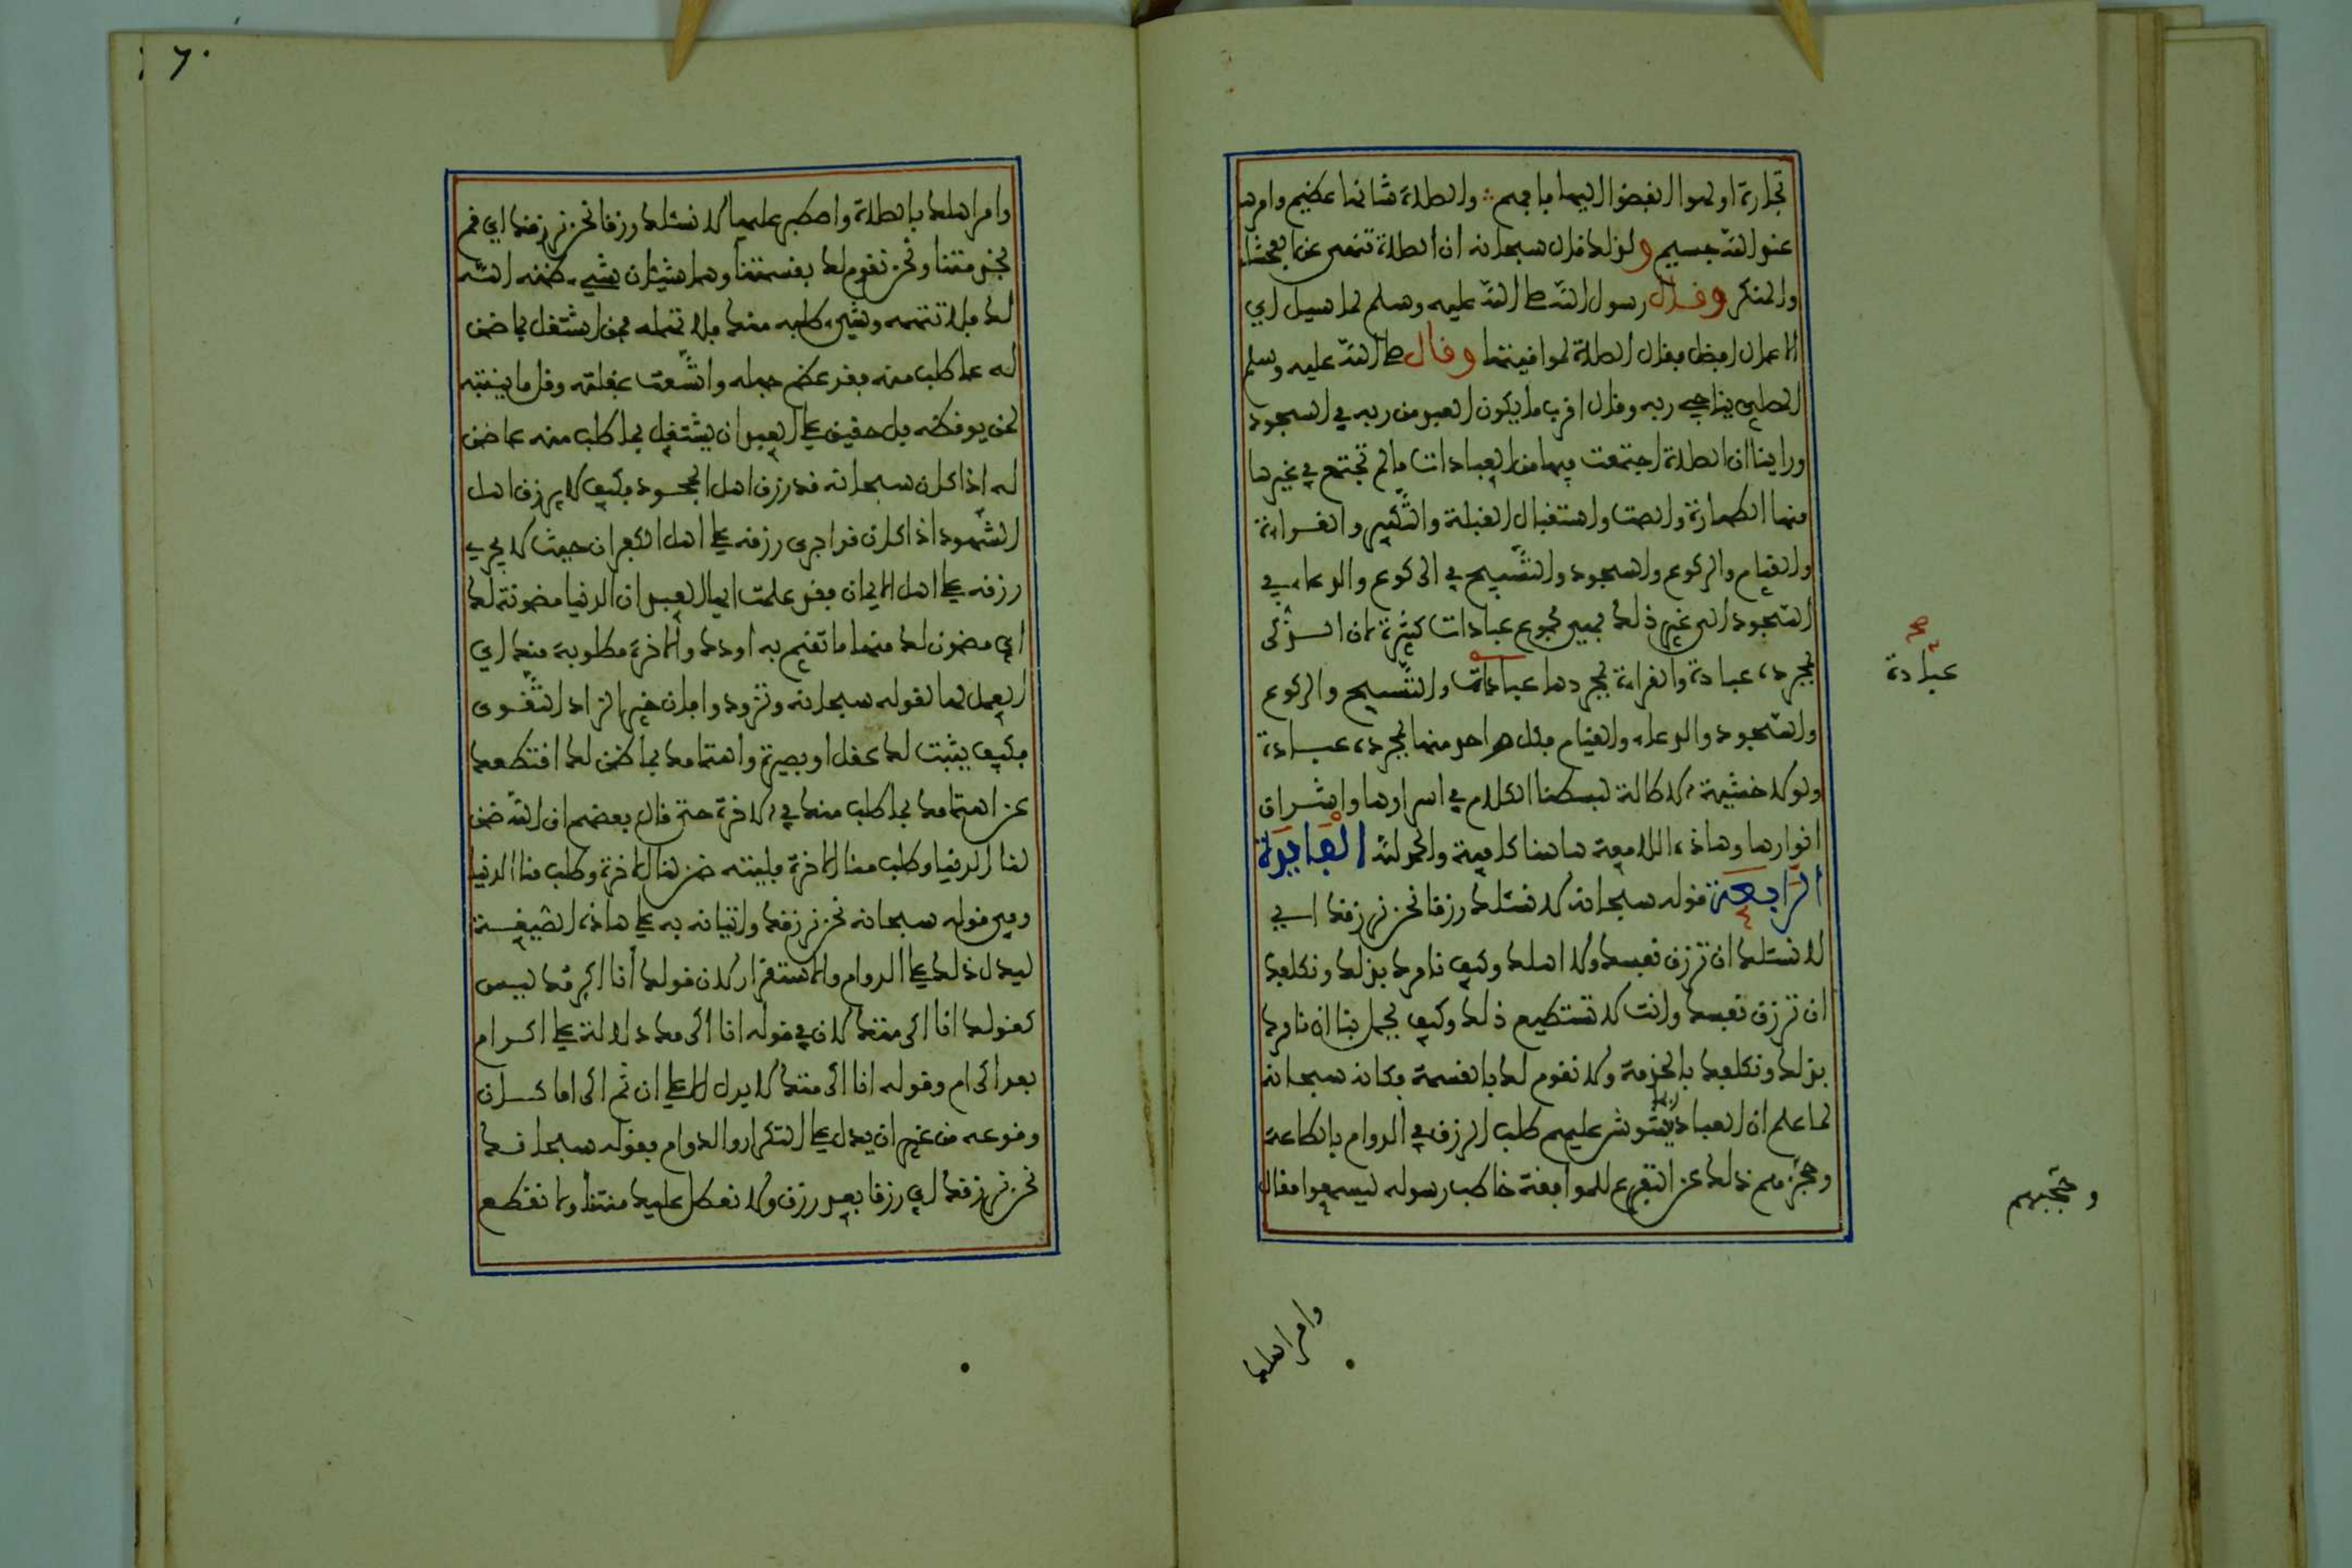 تجارة او لهوا انفضوا اليها فافهم ؞ والصلاة شانها عظيم وامرها
عند الله جسيم ولذلك قال سبحانه ان الصلاة تنهى عن الفحشاء
والمنكر وقال رسول الله صلى الله عليه وسلم لما سيل اي
الاعمال افضل فقال الصلاة لمواقيتها وقال صلى الله عليه وسلم
المصلي يناجي ربه وقال اقرب ما يكون العبد من ربه في السجود
وراينا ان الصلاة اجتمعت فيها من العبادات ما لم تجتمع في غيرها
منها الطهارة والصمت واستقبال القبلة والتكبير والقراءة
والقيام والركوع والسجود والتسبيح في الركوع والدعاء في
السجود الى غير ذلك فهي مجموع عبادات كثيرة لان الذكر
بمجرده عبادة والقراءة بمجردها عبادات والتسبيح والركوع
عبادة صح
والسجود والدعاء والقيام فكل واحد منها بمجرده عبادة
ولولا خشية الاطالة لبسطنا الكلام في اسرارها واشراق
انوارها وهاذه اللامعة هاهنا كافية والحمد لله الفايدة
الرابعة قوله سبحانه لا نسئلك رزقا نحن نرزقك اي
لا نسئلك ان ترزق نفسك ولا اهلك وكيف نامرك بذلك ونكلفك
ان ترزق نفسك وانت لا تستطيع ذلك وكيف يجمل بنا ان نامرك
بذلك ونكلفك بالخدمة ولا نقوم لك بالقسمة فكانه سبحانه
لما علم ان العباد ربما يشوش عليهم طلب الرزق في الدوام بالطاعة
وحجزهم ذلك عن التفرغ للموافقة خاطب رسوله ليسمعوا فقال
وحجبهم
وامر اهلك
٦٠
وامر اهلك بالصلاة واصطبر عليها لا نسئلك رزقا نحن نرزقك اي قم
بخدمتنا ونحن نقوم لك بقسمتنا وهما شيئان شيء ضمنه الله
لك فلا تتهمه وشيء طلبه منك فلا تهمله فمن اشتغل بما ضمن
له عما طلب منه فقد عظم جهله واتسعت غفلته وقل ما ينتبه
لمن يوقظه بل حقيق على العبد ان يشتغل بما طلب منه عما ضمن
له اذا كان سبحانه قد رزق اهل الجحود فكيف لا يرزق اهل
الشهود اذا كان قد اجرى رزقه على اهل الكفران حيث لا يجري
رزقه على اهل الايمان فقد علمت ايها العبد ان الدنيا مضمونة لك
اي مضمون لك منها ما تقيم به اودك والاخرة مطلوبة منك اي
العمل لها لقوله سبحانه وتزودوا فان خير الزاد التقوى
فكيف يثبت لك عقل او بصيرة واهتمامك بما ضمن لك اقتطعك
عن اهتمامك بما طلب منك في الاخرة حتى قال بعضهم ان الله ضمن
لنا الدنيا وطلب منا الاخرة فليته ضمن لنا الاخرة وطلب منا الدنيا
وفي قوله سبحانه نحن نرزقك واتيانه به على هاذه الصيغة
ليدل ذلك على الدوام والاستقرار لان قولك انا اكرمك ليس
كقولك انا اكرمتك لان في قوله انا اكرمك دلالة على اكرام
بعد اكرام وقوله انا اكرمتك لا يدل الا على ان ثم اكراما كان
وقوعه من غير ان يدل على التكرار والدوام فقوله سبحانه
نحن نرزقك اي رزقا بعد رزق ولا نعطل عليك منتنا ولا نقطع